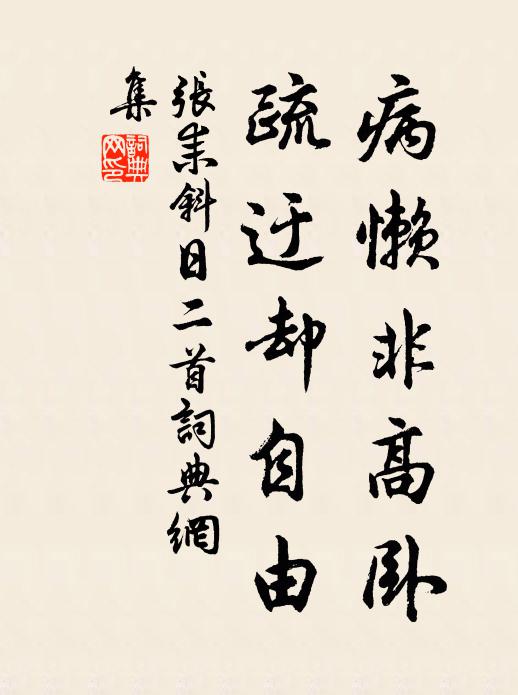 病懒非高卧
疏迂却自由
張耒斜日二首詞典網
集
詞典
网印